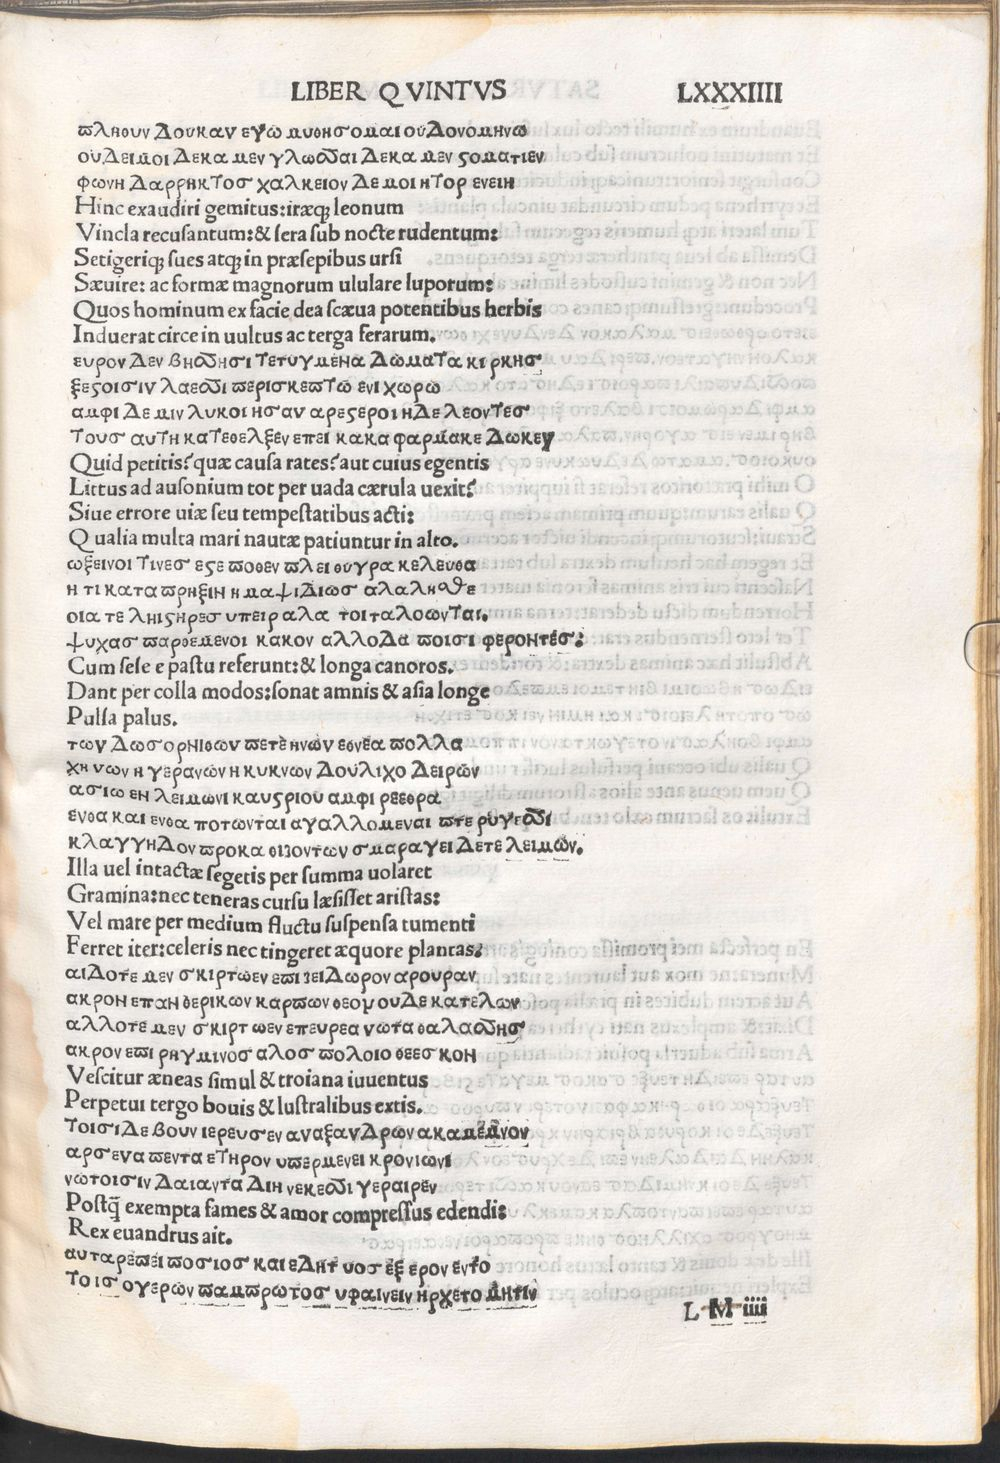 LIBER QVINTVS LXXXIIII
πληθυν Δουκαν εγω μυθησομαι ουΔονομηνω
ουΔειμοι Δεκα μεν γλωσσαι Δεκα μεν ςοματιεν
φωνη Δαρρηκτος χαλκειον Δεμοι ητορ ενειη
Hinc exaudiri gemitus:iræq; leonum
Vincla recusantum:& sera sub nocte rudentum:
Setigeriq; sues atq; in præsepibus ursi
Sæuire: ac formæ magnorum ululare luporum:
Quos hominum ex facie dea scæua potentibus herbis
Induerat circe in uultus ac terga ferarum.
ευρον Δεν βησσησι τετυγμενα Δωματα κιρκης
ξεςοισιν λαεσσι περισκεπτω ενι χωρω
αμφι Δεμιν λυκοι ησαν αρεςεροι ηΔε λεοντες
τους αυτη κατεθελξεν επει κακα φαρμακε Δωκεν
Quid petitis? quæ causa rates? aut cuius egentis
Littus ad ausonium tot per uada cærula uexit?
Siue errore uiæ seu tempestatibus acti:
Qualia multa mari nautæ patiuntur in alto.
ωξεινοι τινες εςε ποθεν πλει θυγρα κελευθα
η τι κατα πρηξιν η μαψιΔιως αλαλησθε
οια τε ληιςηρες υπειραλα τοιταλοωνται.
ψυχας παρθεμενοι κακον αλλοΔα ποισι φεροντες:
Cum sese e pastu referunt:& longa canoros.
Dant per colla modos:sonat amnis & asia longe
Pulsa palus.
των Δωσορνιθων πετεηνων εθνεα πολλα
χηνων η γερανων η κυκνων ΔουλιχοΔειρων
ασιω εν λειμωνι καυςριου αμφι ρεεθρα
ενθα και ενθα ποτωνται αγαλλομεναι πτερυγεσσι
κλαγγηΔον προκαθιζοντων σμαραγει Δετε λειμων.
Illa uel intactæ segetis per summa uolaret
Gramina:nec teneras cursu læsisset aristas:
Vel mare per medium fluctu suspensa tumenti
Ferret iter:celeris nec tingeret æquore plantas:
αιΔοτε μεν σκιρτωεν επι ζειΔωρον αρουραν
ακρον επανθερικων καρπων θεον ουΔε κατελων
αλλοτε μεν σκιρτωεν επευρεα νωτα θαλασσης
ακρον επι ρηγμινος αλος πολοιο θεεσκον
Vescitur æneas simul & troiana iuuentus
Perpetui tergo bouis & lustralibus extis.
τοισιΔε βουν ιερευσεν αναξανΔρων ακαμεμνον
αρσενα πενταετηρον υπερμενει κρονιωνι
νωτοισιν Δαιαντα Διηνεκεσσι γεραιρεν
Postq̄ exempta fames & amor compressus edendi:
Rex euandrus ait.
αυταρεπει ποσιος και εΔητυος εξ ερον εντο
τοις ογερων παμπρωτος υφαινειν ηρχετο μητιν
L M iiii